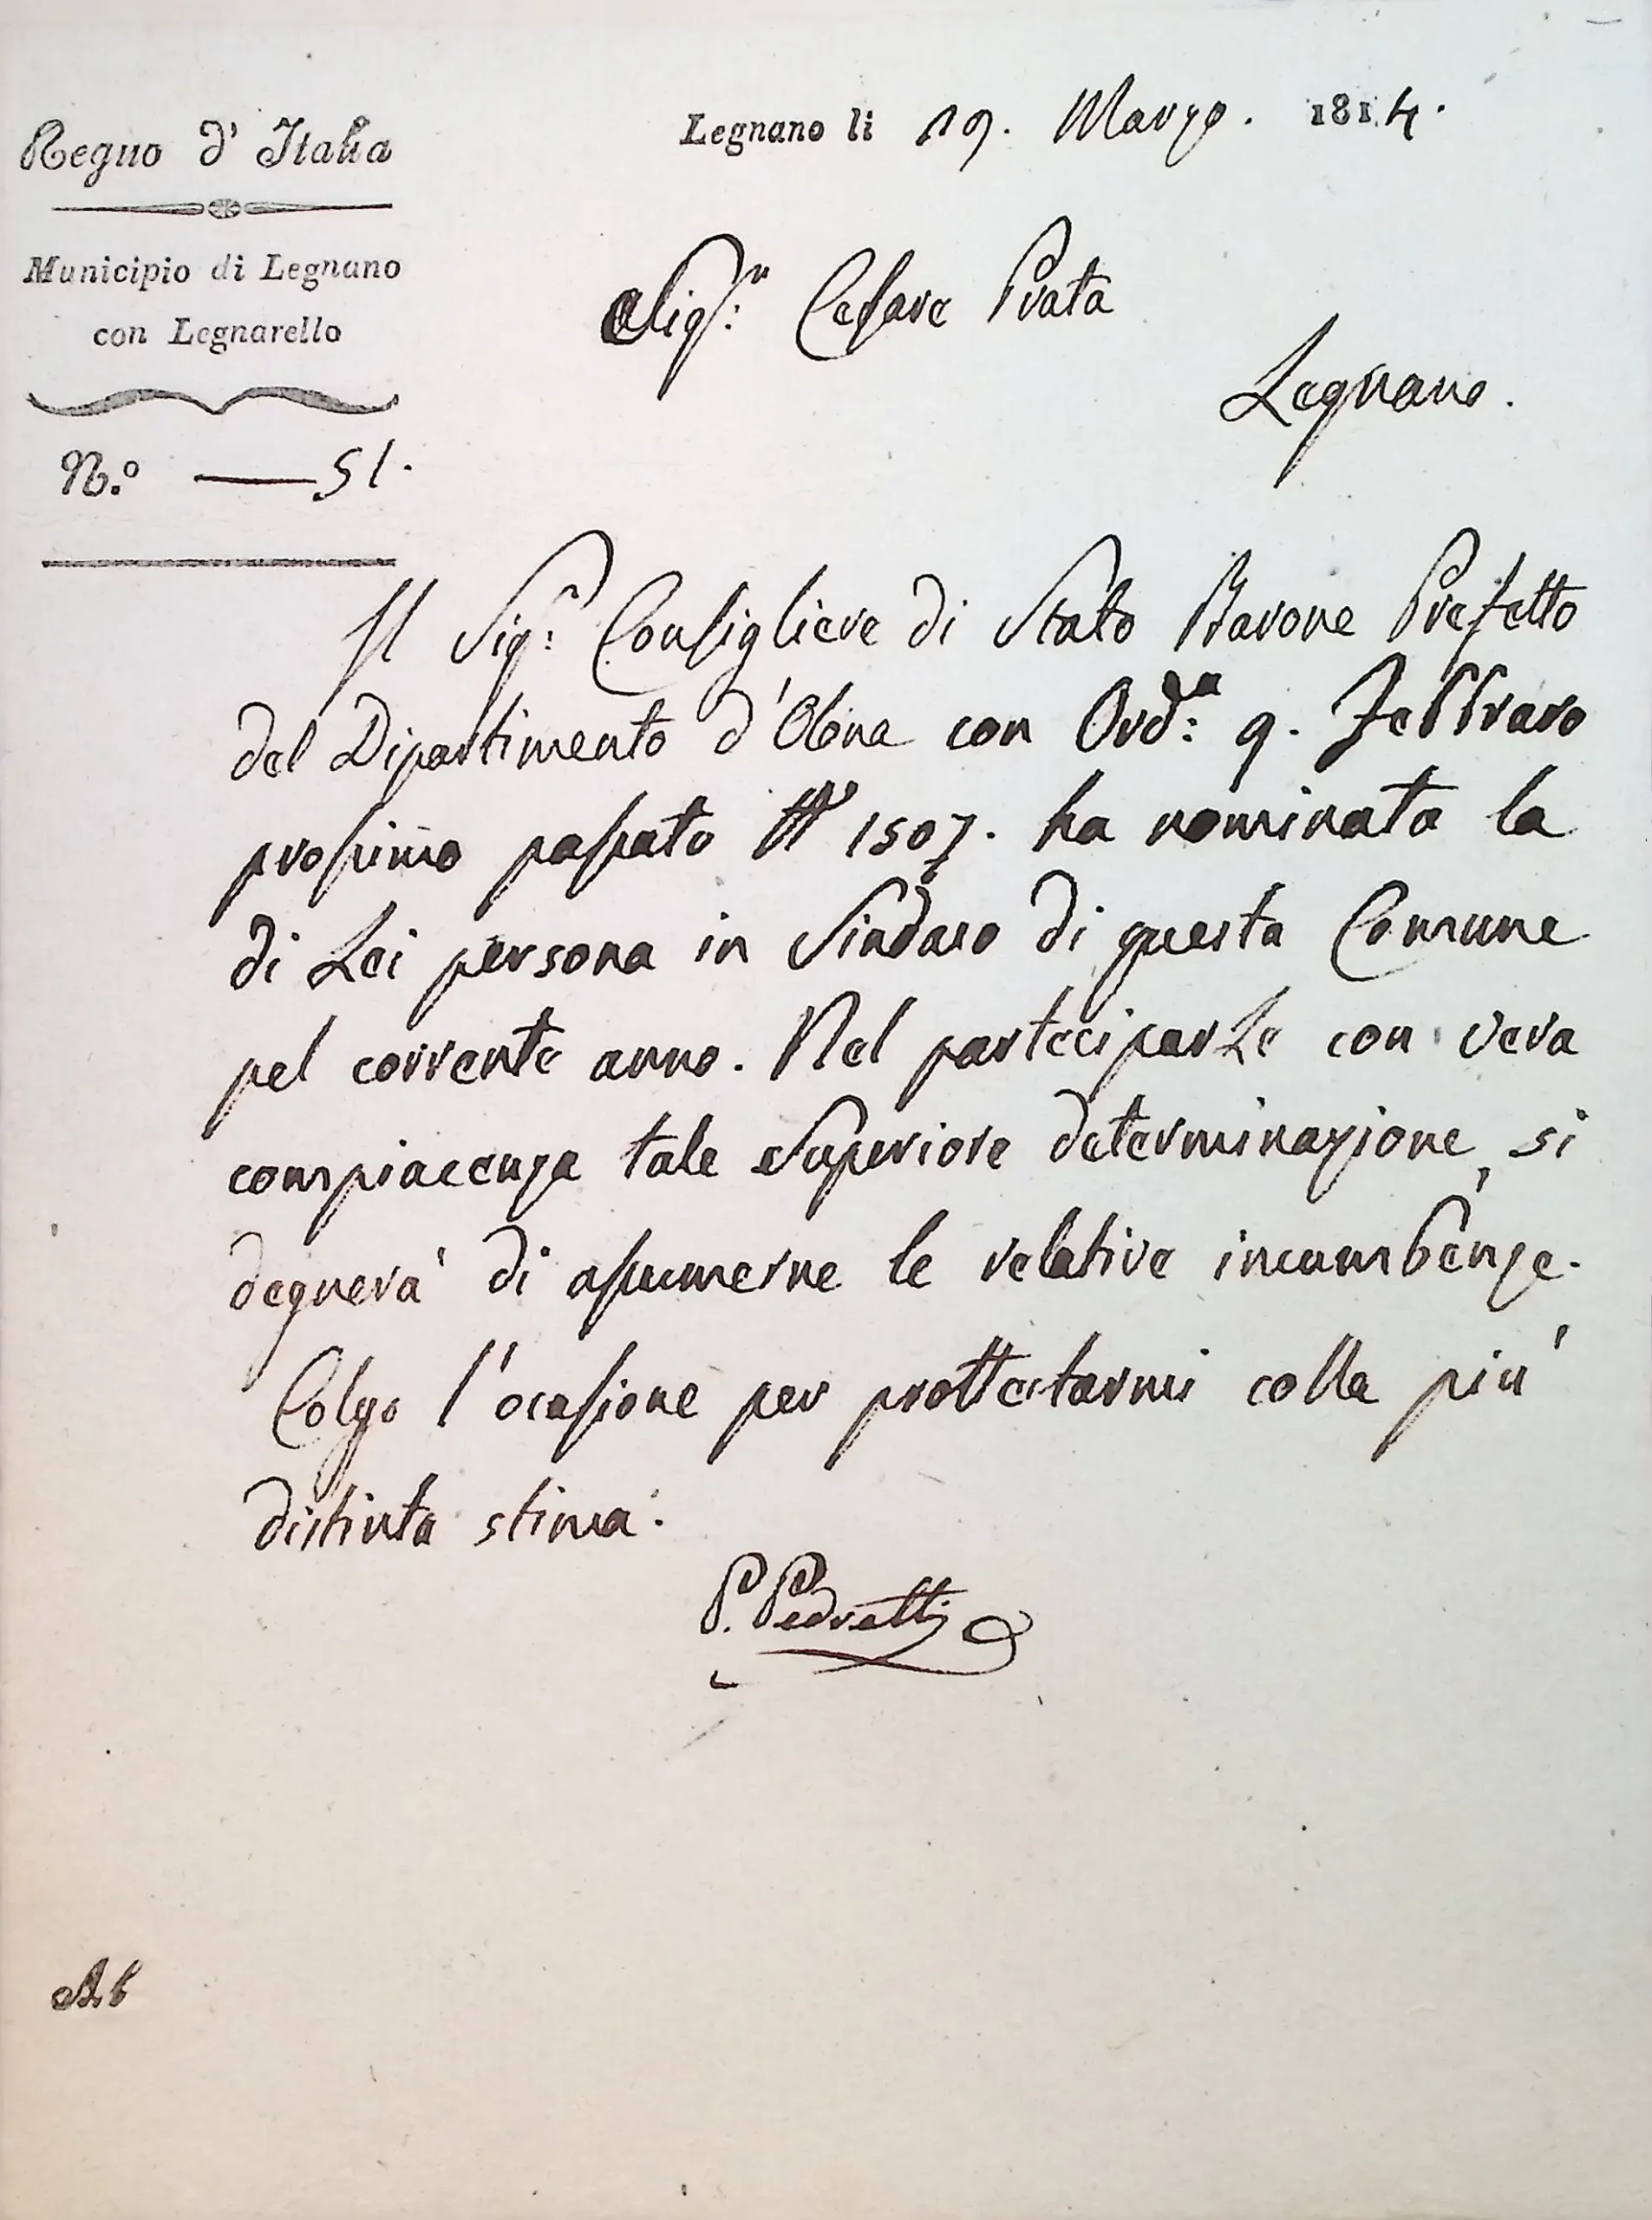 Regno d'Italia
Municipio di Legnano
con Legnarello
N.º 51.
Legnano li 19. Marzo. 1814.
Sig.r Cesare Prata
Legnano.
Il Sig.r Consigliere di Stato Barone Prefetto
del Dipartimento d'Olona con Ord.a 9. Febbraro
prossimo passato N 1507. ha nominata la
di Lei persona in Sindaco di questa Comune
pel corrente anno. Nel parteciparLe con vera
compiacenza tale Superiore determinazione, si
degnerà di assumerne le relative incumbenze.
Colgo l'ocasione per prottestarmi colla più
distinta stima.
P. Pedretti